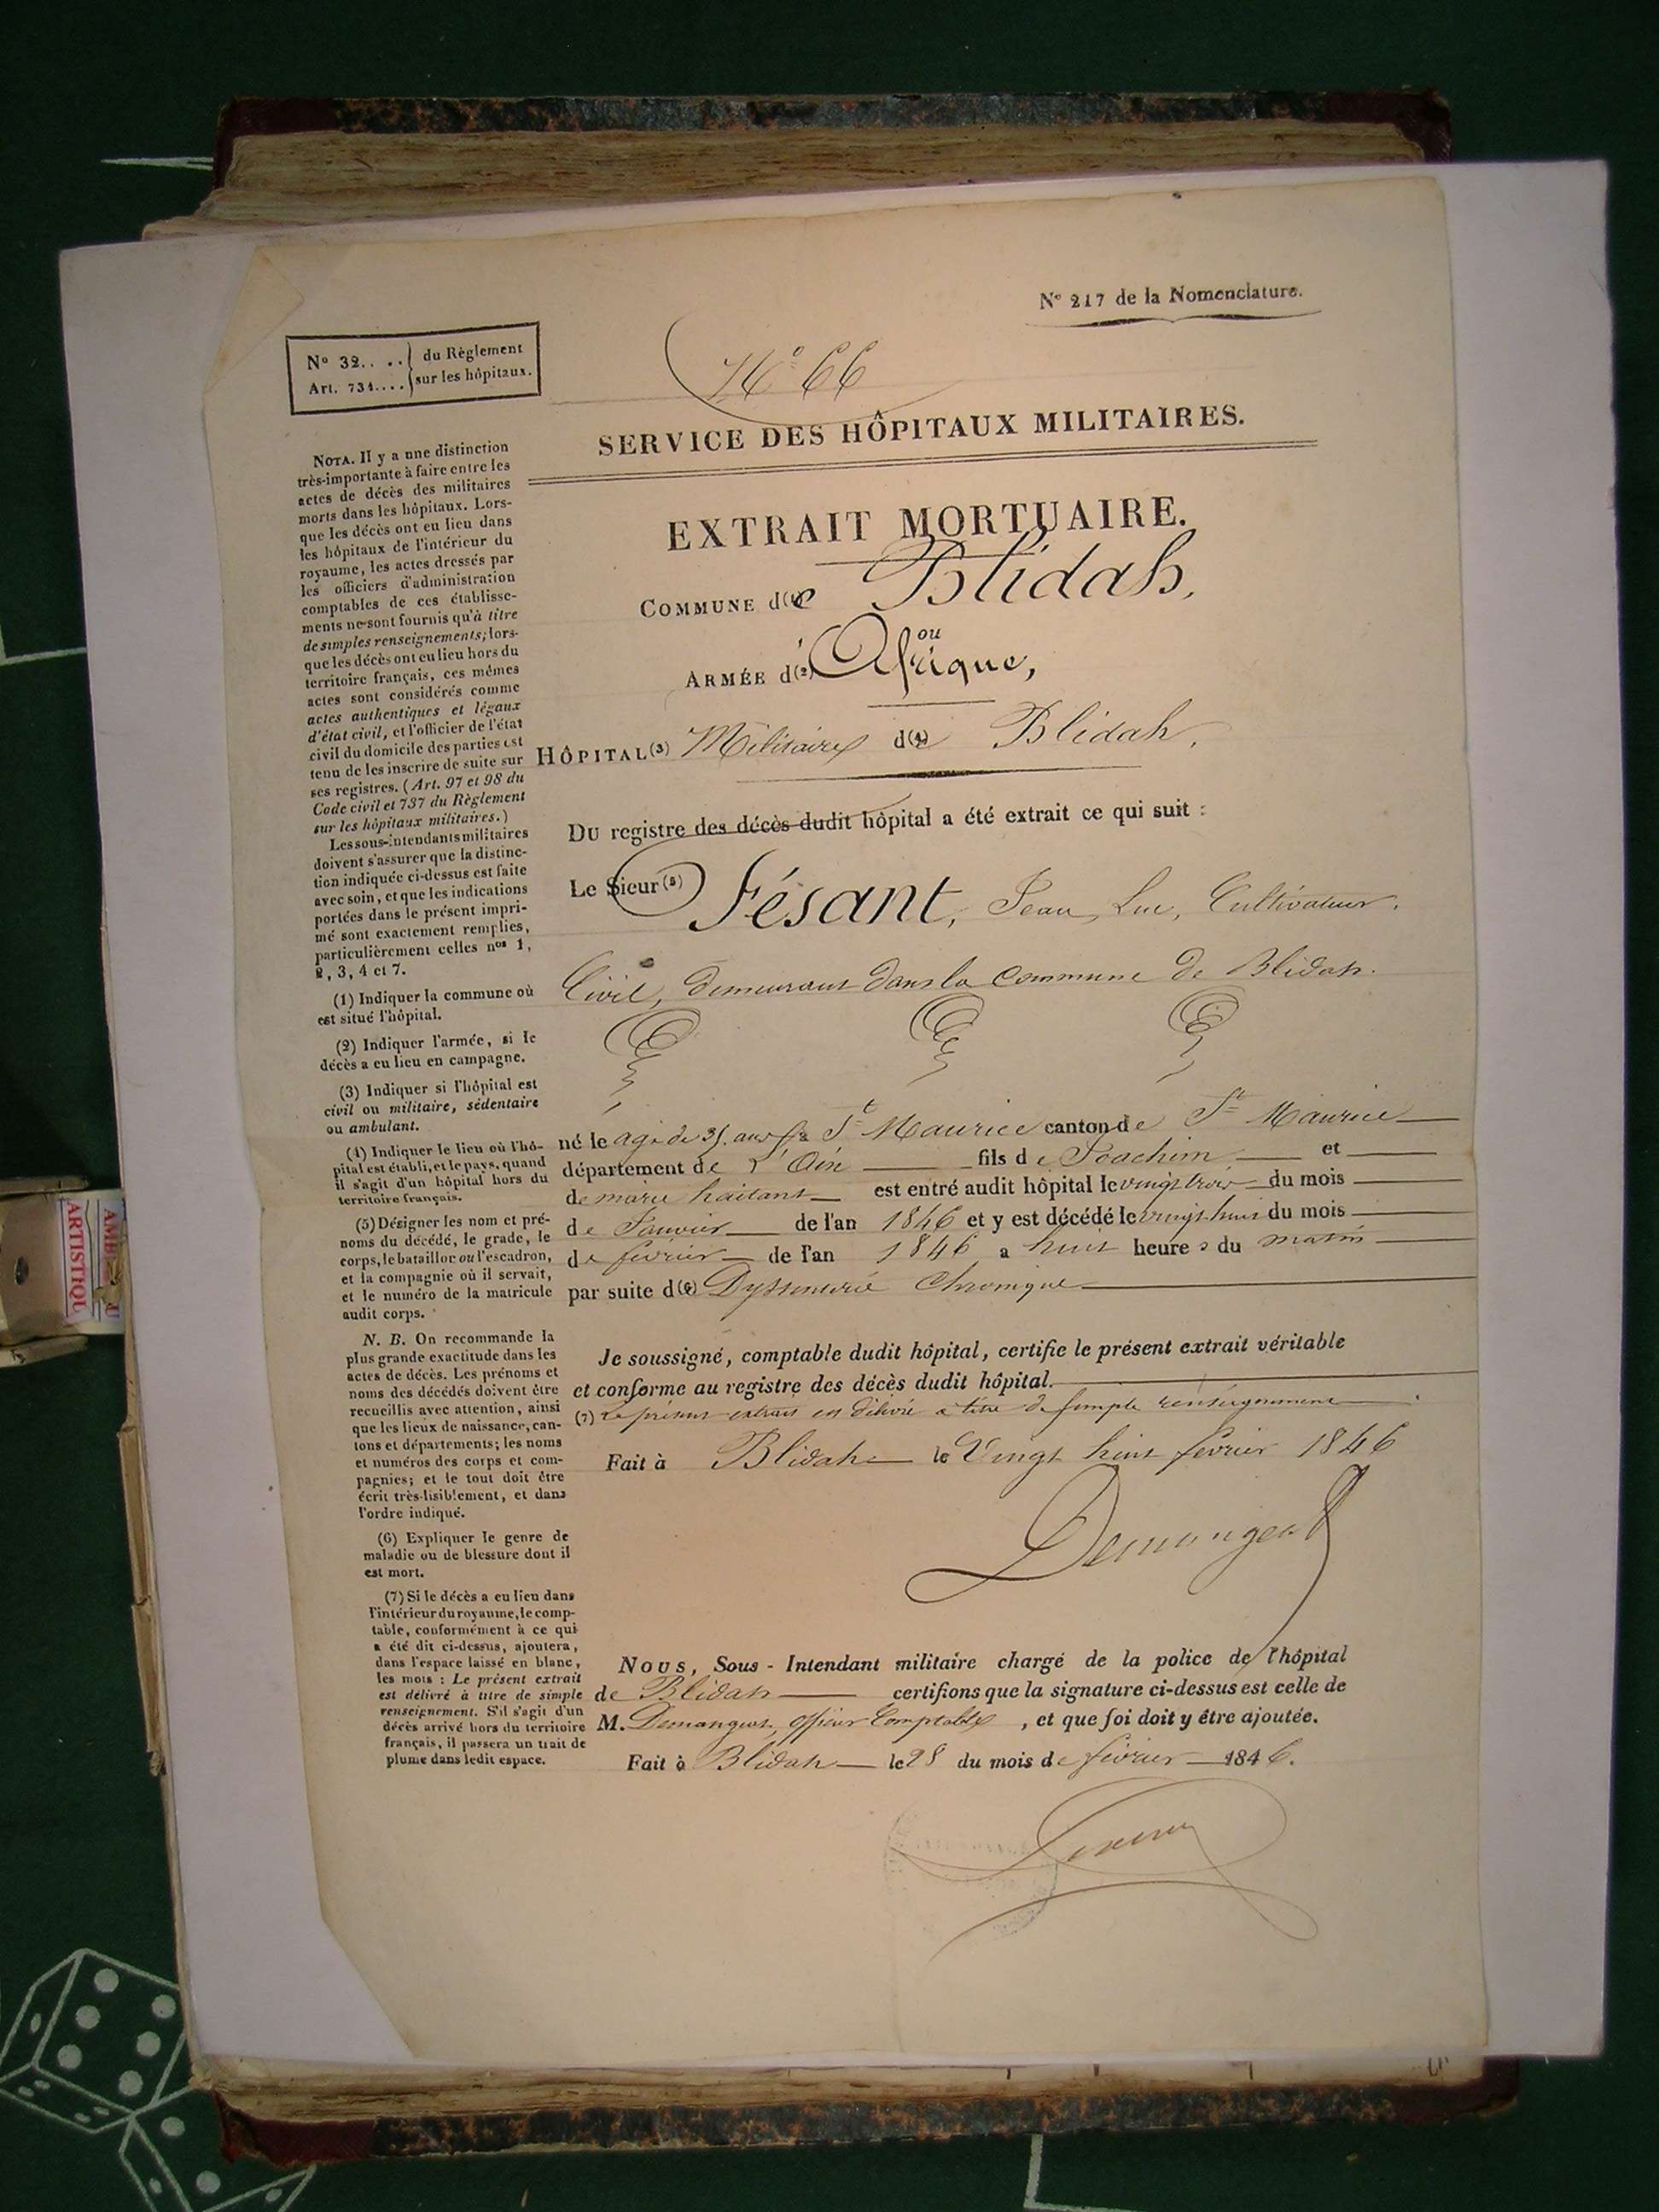 N° 217 de la Nomenclature.
N° 32.. .. du Règlement
Art. 734.... sur les hôpitaux.
N° 66
SERVICE DES HÔPITAUX MILITAIRES.
EXTRAIT MORTUAIRE.
COMMUNE d(1)e Blidah,
ou
ARMÉE d'(2) Afrique,
HÔPITAL(3) Militaire d(4)e Blidah,
DU registre des décès dudit hôpital a été extrait ce qui suit :
Le Sieur(5) Fésant, Jean, Luc, Cultivateur.
Civil, demeurant dans la commune de Blidah.
né le agé de 35 ans à St Maurice canton de St Maurice
département de L'Ain fils de Joachim et
de marie haitant est entré audit hôpital le vingt trois du mois
de Janvier de l'an 1846 et y est décédé le vingt huit du mois
de février de l'an 1846 a huit heures du matin
par suite d(6)e Dyssenterie Chronique
Je soussigné, comptable dudit hôpital, certifie le présent extrait véritable
et conforme au registre des décès dudit hôpital.
(7) Le présent extrait est délivré a titre de simple renseignement
Fait à Blidah le Vingt huit février 1846
Demangeat
NOUS, Sous-Intendant militaire chargé de la police de l'hôpital
de Blidah certifions que la signature ci-dessus est celle de
M. Demangeat, officier Comptable, et que foi doit y être ajoutée.
Fait à Blidah le 28 du mois de février 1846.
NOTA. Il y a une distinction
très-importante à faire entre les
actes de décès des militaires
morts dans les hôpitaux. Lors-
que les décès ont eu lieu dans
les hôpitaux de l'intérieur du
royaume, les actes dressés par
les officiers d'administration
comptables de ces établisse-
ments ne sont fournis qu'à titre
de simples renseignements; lors-
que les décès ont eu lieu hors du
territoire français, ces mêmes
actes sont considérés comme
actes authentiques et légaux
d'état civil, et l'officier de l'état
civil du domicile des parties est
tenu de les inscrire de suite sur
ses registres. (Art. 97 et 98 du
Code civil et 737 du Règlement
sur les hôpitaux militaires.)
Les sous-intendants militaires
doivent s'assurer que la distinc-
tion indiquée ci-dessus est faite
avec soin, et que les indications
portées dans le présent impri-
mé sont exactement remplies,
particulièrement celles nos 1,
2, 3, 4 et 7.
(1) Indiquer la commune où
est situé l'hôpital.
(2) Indiquer l'armée, si le
décès a eu lieu en campagne.
(3) Indiquer si l'hôpital est
civil ou militaire, sédentaire
ou ambulant.
(4) Indiquer le lieu où l'hô-
pital est établi, et le pays, quand
il s'agit d'un hôpital hors du
territoire français.
(5) Désigner les nom et pré-
noms du décédé, le grade, le
corps, le bataillon ou l'escadron,
et la compagnie où il servait,
et le numéro de la matricule
audit corps.
N. B. On recommande la
plus grande exactitude dans les
actes de décès. Les prénoms et
noms des décédés doivent être
recueillis avec attention, ainsi
que les lieux de naissance, can-
tons et départements; les noms
et numéros des corps et com-
pagnies; et le tout doit être
écrit très-lisiblement, et dans
l'ordre indiqué.
(6) Expliquer le genre de
maladie ou de blessure dont il
est mort.
(7) Si le décès a eu lieu dans
l'intérieur du royaume, le comp-
table, conformément à ce qui
a été dit ci-dessus, ajoutera,
dans l'espace laissé en blanc,
les mots : Le présent extrait
est délivré à titre de simple
renseignement. S'il s'agit d'un
décès arrivé hors du territoire
français, il passera un trait de
plume dans ledit espace.
ARTISTIQU